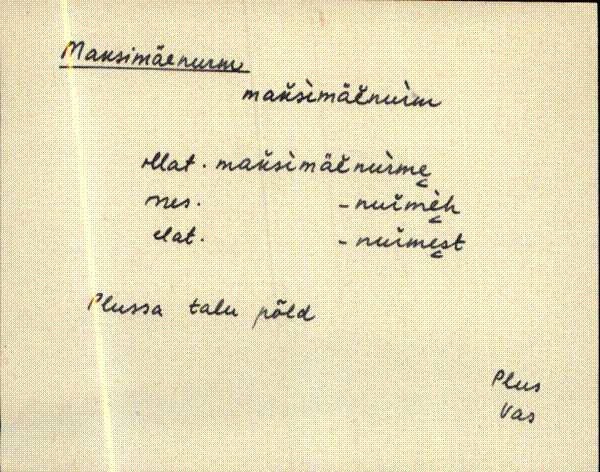 Maksimäenurm
mak̆sìmäĕnuìm
illat. mak̆sìmäĕnuìrme̮
ines. -nuĭme̮h
elat. -nuĭme̮st
Plussa talu põld
Plus
Vas